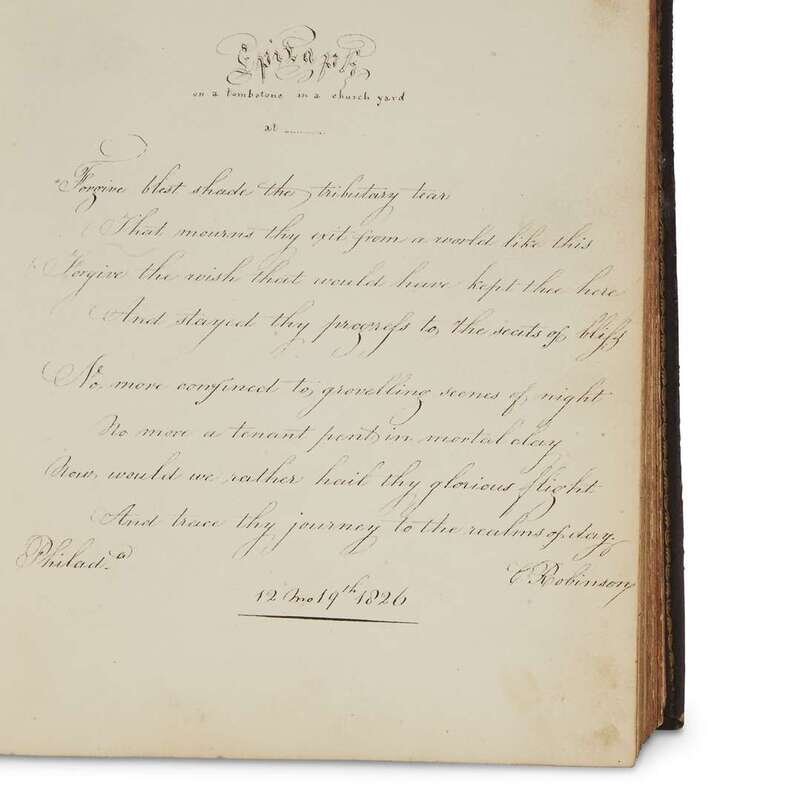 Epitaph
on a tombstone in a church yard
at ———
"Forgive blest shade the tributary tear
That mourns thy exit from a world like this
Forgive the wish that would have kept thee here
And stayed thy progreſs to the seats of bliſs
No more confined to grovelling scenes of night
No more a tenant pent in mortal clay
Now would we rather hail thy glorious flight
And trace thy journey to the realms of day.
Philad.ª
C Robinson
12 Mo 19th 1826